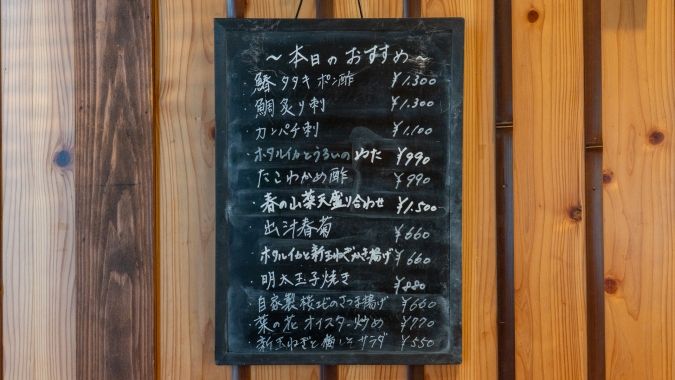 ～本日のおすすめ～
・鰆タタキポン酢 ¥1.300
・鯛炙り刺 ¥1.300
・カンパチ刺 ¥1.100
・ホタルイカとうるいのぬた ¥990
・たこわかめ酢 ¥990
・春の山菜天盛り合わせ ¥1.500
・出汁春菊 ¥660
・ホタルイカと新玉ねぎかき揚げ ¥660
・明太玉子焼き ¥880
・自家製桜エビのさつま揚げ ¥660
・菜の花オイスター炒め ¥770
・新玉ねぎと梅しそサラダ ¥550